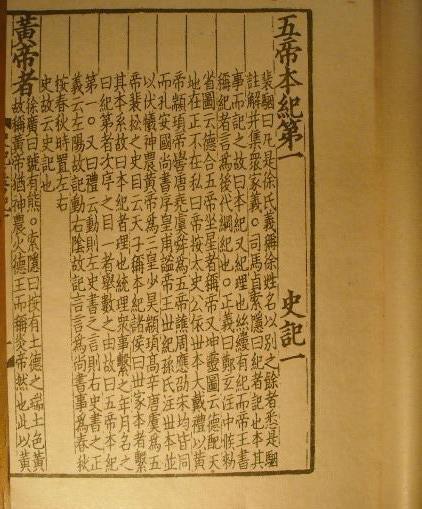 五帝本紀第一　史記一
裴駰曰凡是徐氏義稱徐姓名以別之餘者悉是駰
註解并集衆家義。司馬貞索隱曰紀者記也本其
事而記之故曰本紀又紀理也絲縷有紀而帝王書
稱紀者言爲後代綱紀也。正義曰鄭玄注中候敕
省圖云德合五帝坐星者稱帝又坤靈圖云德配天
地在正不在私曰帝按太史公依世本大戴禮以黃
帝顓頊帝嚳唐堯虞舜爲五帝譙周應劭宋均皆同
而孔安國尚書序皇甫謐帝王世紀孫氏注世本並
以伏犧神農黃帝爲三皇少昊顓頊高辛唐虞爲五
帝裴松之史目云天子稱本紀諸侯曰世家本者繫
其本系故曰本紀者理也統理衆事繫之年月名之
曰紀第者次序之目一者舉數之由故曰五帝本紀
第一。又曰禮云動則左史書之言則右史書之正
義云左陽故記動右陰故記言言爲尚書事爲春秋
按春秋時置左右
史故云史記也
黃帝者
徐廣曰號有熊。索隱曰按有土德之瑞土色黃
故稱黃帝猶神農火德王而稱炎帝然也此以黃